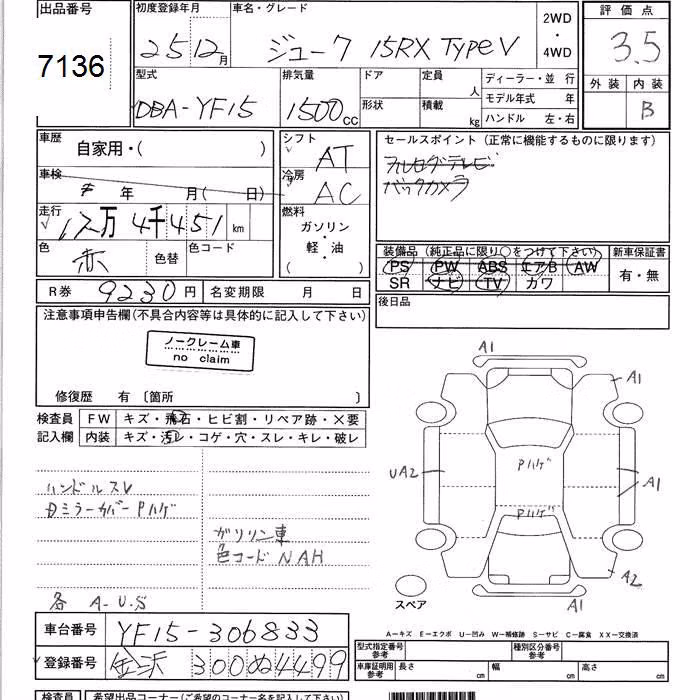 出品番号
7136
初度登録年月
25 12月
車名・グレード
ジューク 15RX TypeV
2WD
・
4WD
評価点
3.5
外装 内装
B
型式
DBA-YF15
排気量
1500cc
ドア
形状
定員
人
積載
kg
ディーラー・並行
モデル年式 年
ハンドル 左・右
車歴
自家用・( )
車検
年 月( 日)
走行
12万4千451km
色
赤
色替
色コード
R券 9230円
名変期限 月 日
シフト
AT
冷房
AC
燃料
ガソリン
・
軽・油
( )
セールスポイント (正常に機能するものに限ります)
フルセグテレビ
バックカメラ
装備品 (純正品に限り○をつけて下さい)
PS PW ABS エアB AW
SR ナビ TV カワ
新車保証書
有・無
後日品
注意事項申告欄(不具合内容等は具体的に記入して下さい)
ノークレーム車
no claim
修復歴 有 〔箇所 〕
検査員
記入欄
FW キズ・飛石・ヒビ割・リペア跡・×要
内装 キズ・汚レ・コゲ・穴・スレ・キレ・破レ
ハンドルスレ
ミラーカバーPハゲ
ガソリン車
色コードNAH
各 A-U.S
A1
A1
UA2
Pハゲ
A1
Pハゲ
A2
A1
スペア
A-キズ E-エクボ U-凹み W-補修跡 S-サビ C-腐食 XX-交換済
車台番号 YF15-306833
登録番号 金沢 300ぬ4499
型式指定番号
参考
種別区分番号
参考
車庫証明用
参考
長さ cm 幅 cm 高さ cm
検査員 希望出品コーナー(ご希望のコーナー名を記入して下さい)